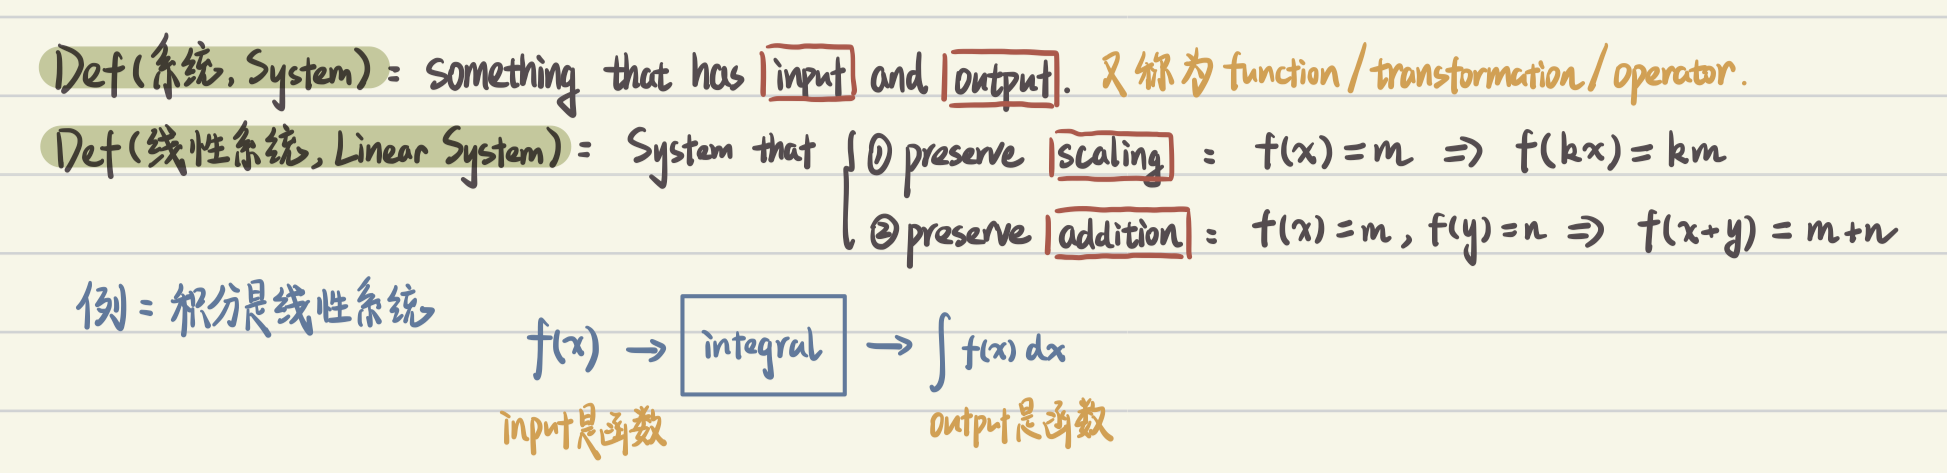 Def(系统, System): something that has input and output. 又称为 function/transformation/operator.
Def(线性系统, Linear System): System that { ① preserve scaling : f(x)=m ⇒ f(kx)=km
② preserve addition : f(x)=m, f(y)=n ⇒ f(x+y)=m+n
例: 积分是线性系统
f(x) → integral → ∫ f(x) dx
input是函数 output是函数